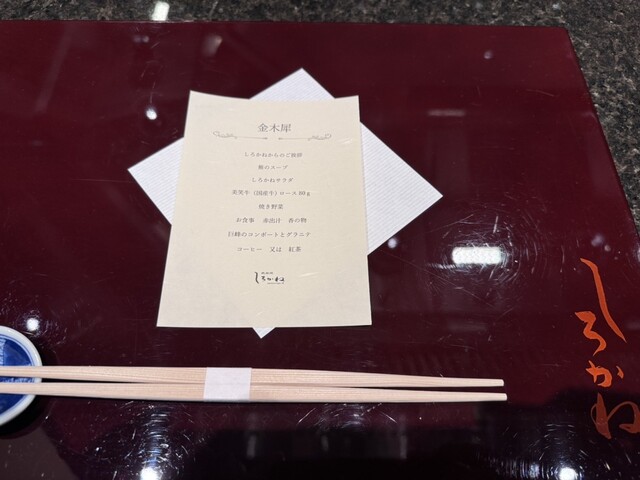 金木犀
しろかねからのご挨拶
のスープ
しろかねサラダ
美笑牛(国産牛)ロース80g
焼き野菜
お食事 赤出汁 香の物
巨峰のコンポートとグラニテ
コーヒー 又は 紅茶
しろかね
しろかね